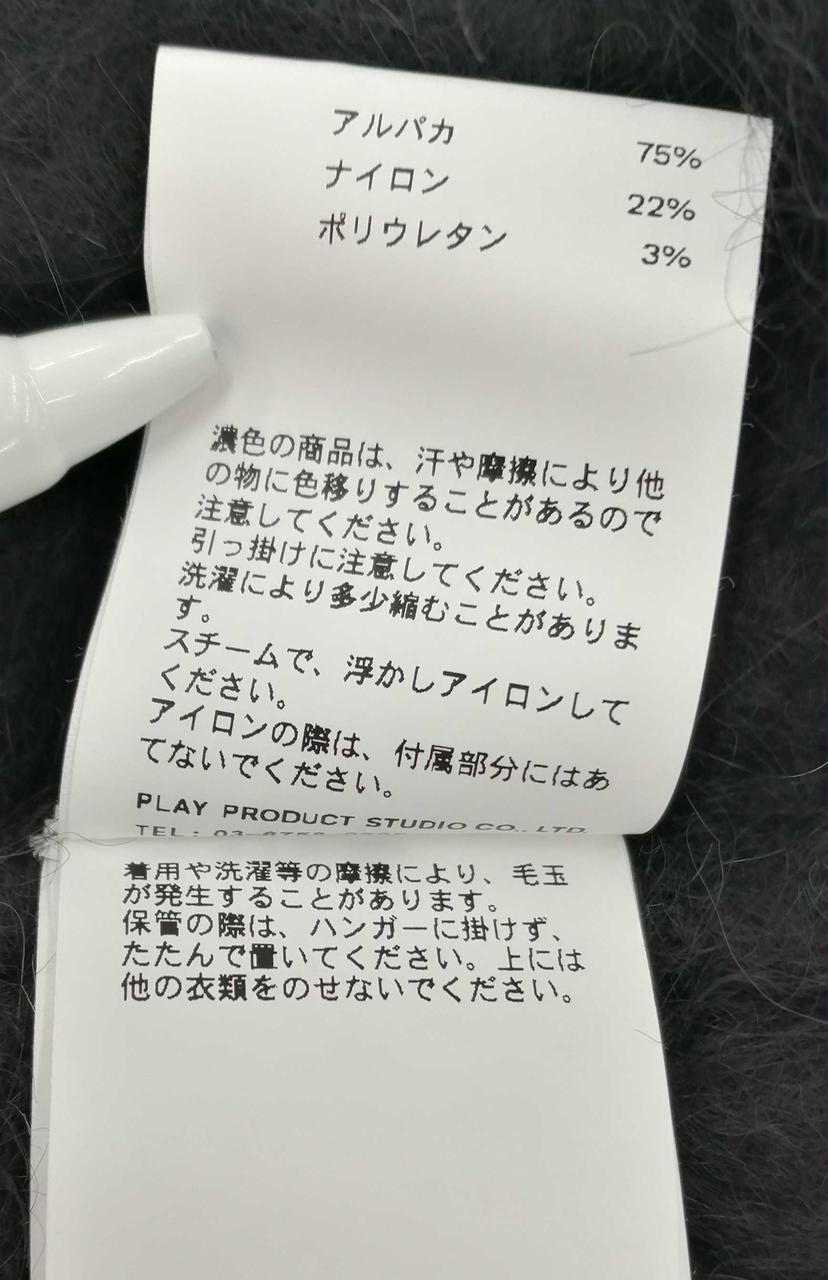 アルパカ 75%
ナイロン 22%
ポリウレタン 3%
濃色の商品は、汗や摩擦により他
の物に色移りすることがあるので
注意してください。
引っ掛けに注意してください。
洗濯により多少縮むことがありま
す。
スチームで、浮かしアイロンして
ください。
アイロンの際は、付属部分にはあ
てないでください。
PLAY PRODUCT STUDIO CO., LTD.
TEL: 03-
着用や洗濯等の摩擦により、毛玉
が発生することがあります。
保管の際は、ハンガーに掛けず、
たたんで置いてください。上には
他の衣類をのせないでください。